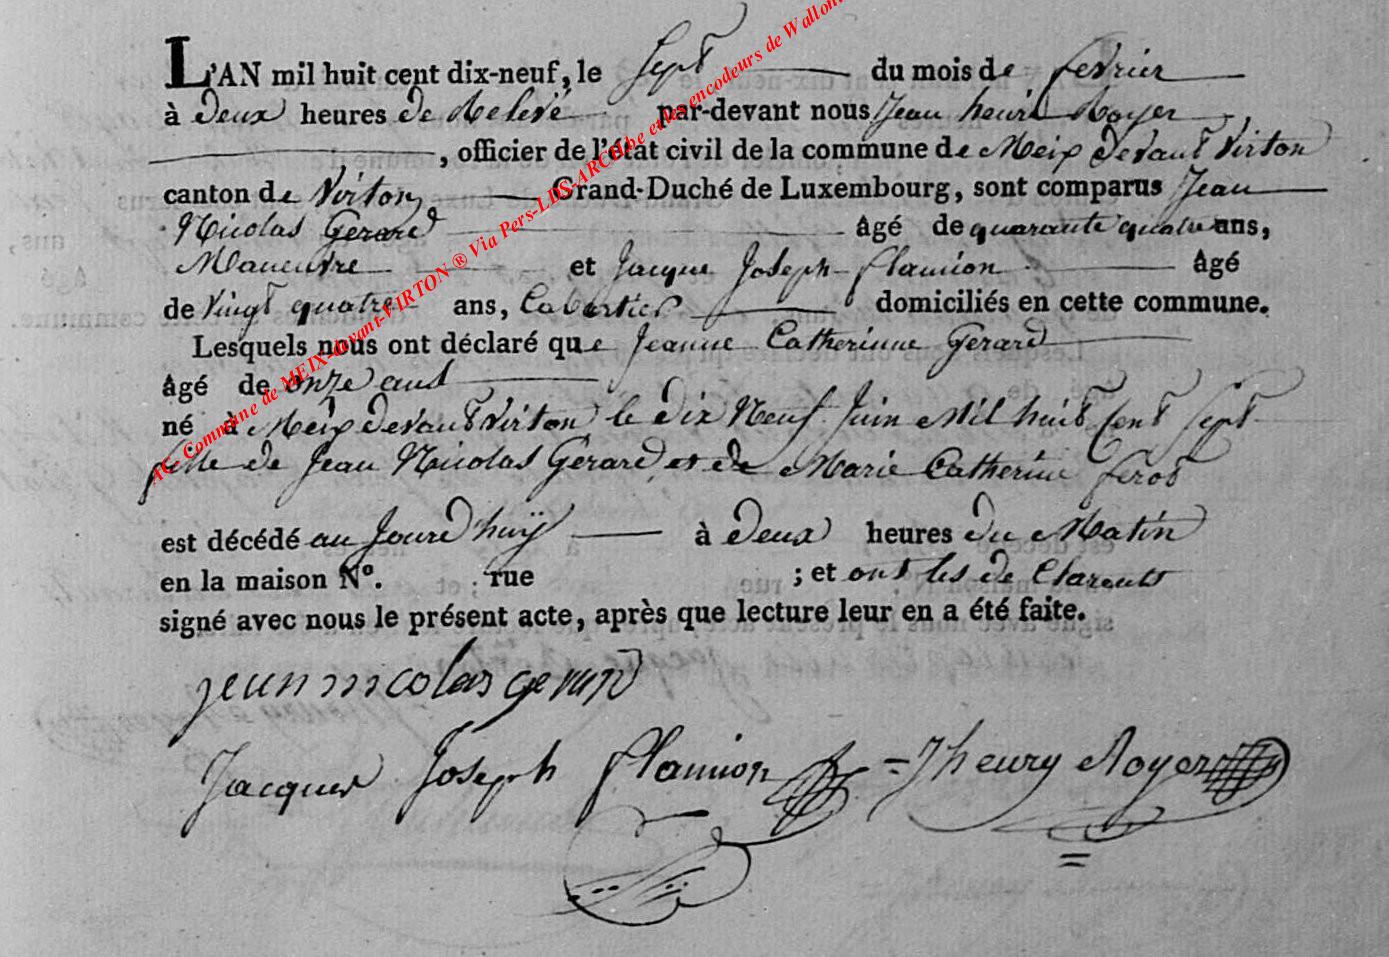 L'AN mil huit cent dix-neuf, le Sept du mois de fevrier
à deux heures de Relevé par-devant nous Jean henri Royer,
, officier de l'état civil de la commune de Meix devant Virton
canton de Virton Grand-Duché de Luxembourg, sont comparus Jean
Nicolas Gerard âgé de quarante quatre ans,
Maneuvre et Jacque Joseph flamion âgé
de vingt quatre ans, Cabartier domiciliés en cette commune.
Lesquels nous ont déclaré que Jeanne Catherinne Gerard
âgé de onze ans
né à Meix devant Virton le dix Neuf Juin Mil huit Cent Sept
fille de Jean Nicolas Gerard et de Marie Catherine
est décédé au Jourd'huÿ à deux heures du Matin
en la maison N°. rue ; et ont les de Clarants
signé avec nous le présent acte, après que lecture leur en a été faite.
jean nicolas gerard
Jacques Joseph flamion Jhenry Royer
AC. Commune de MEIX-devant-VIRTON ® Via Pers-LDS-ARCH.be et les encodeurs de Wallon